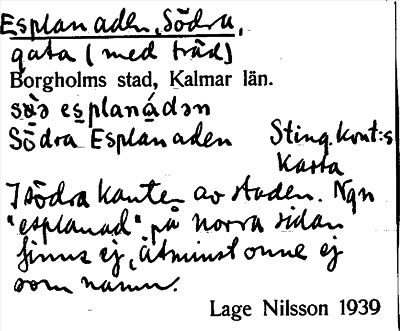 Esplanaden, Södra,
gata (med träd)
Borgholms stad, Kalmar län.
esplanádən
Södra Esplanaden Sting. kont:s
Karta
I södra kanten av staden. Ngn
"esplanad" på norra sidan
finns ej, åtminstonne ej
som namn.
Lage Nilsson 1939